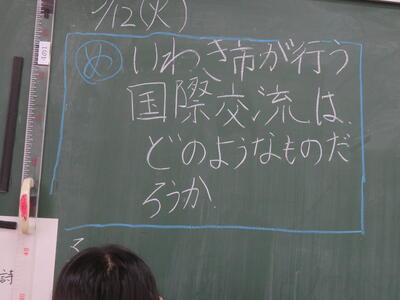 /12(火)
め
いわき市が行う
国際交流は、
どのようなものだ
ろうか。
詩